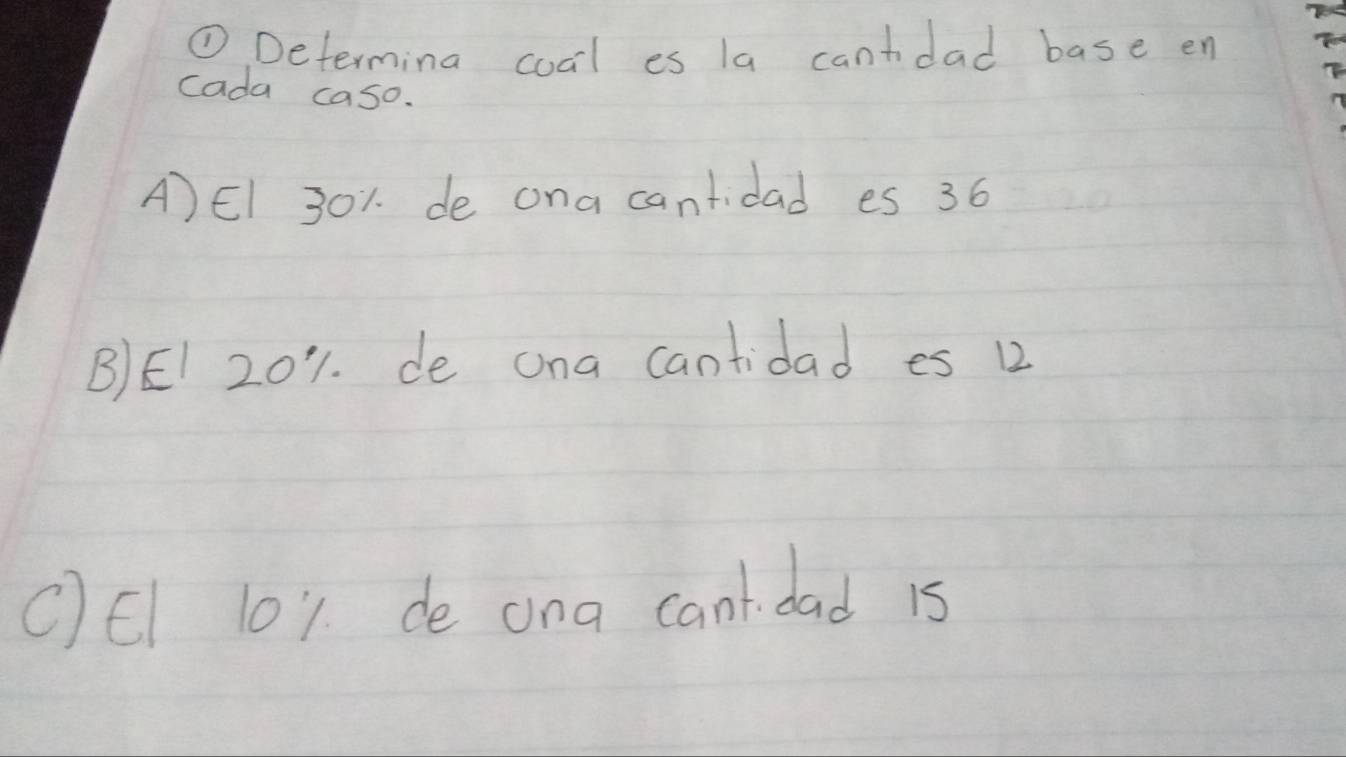 ① Determina cuál es la cantidad base en
cada caso.
A) El 30% de una cantidad es 36
B) El 20% de una cantidad es 12
C) El 10% de una cantidad 15